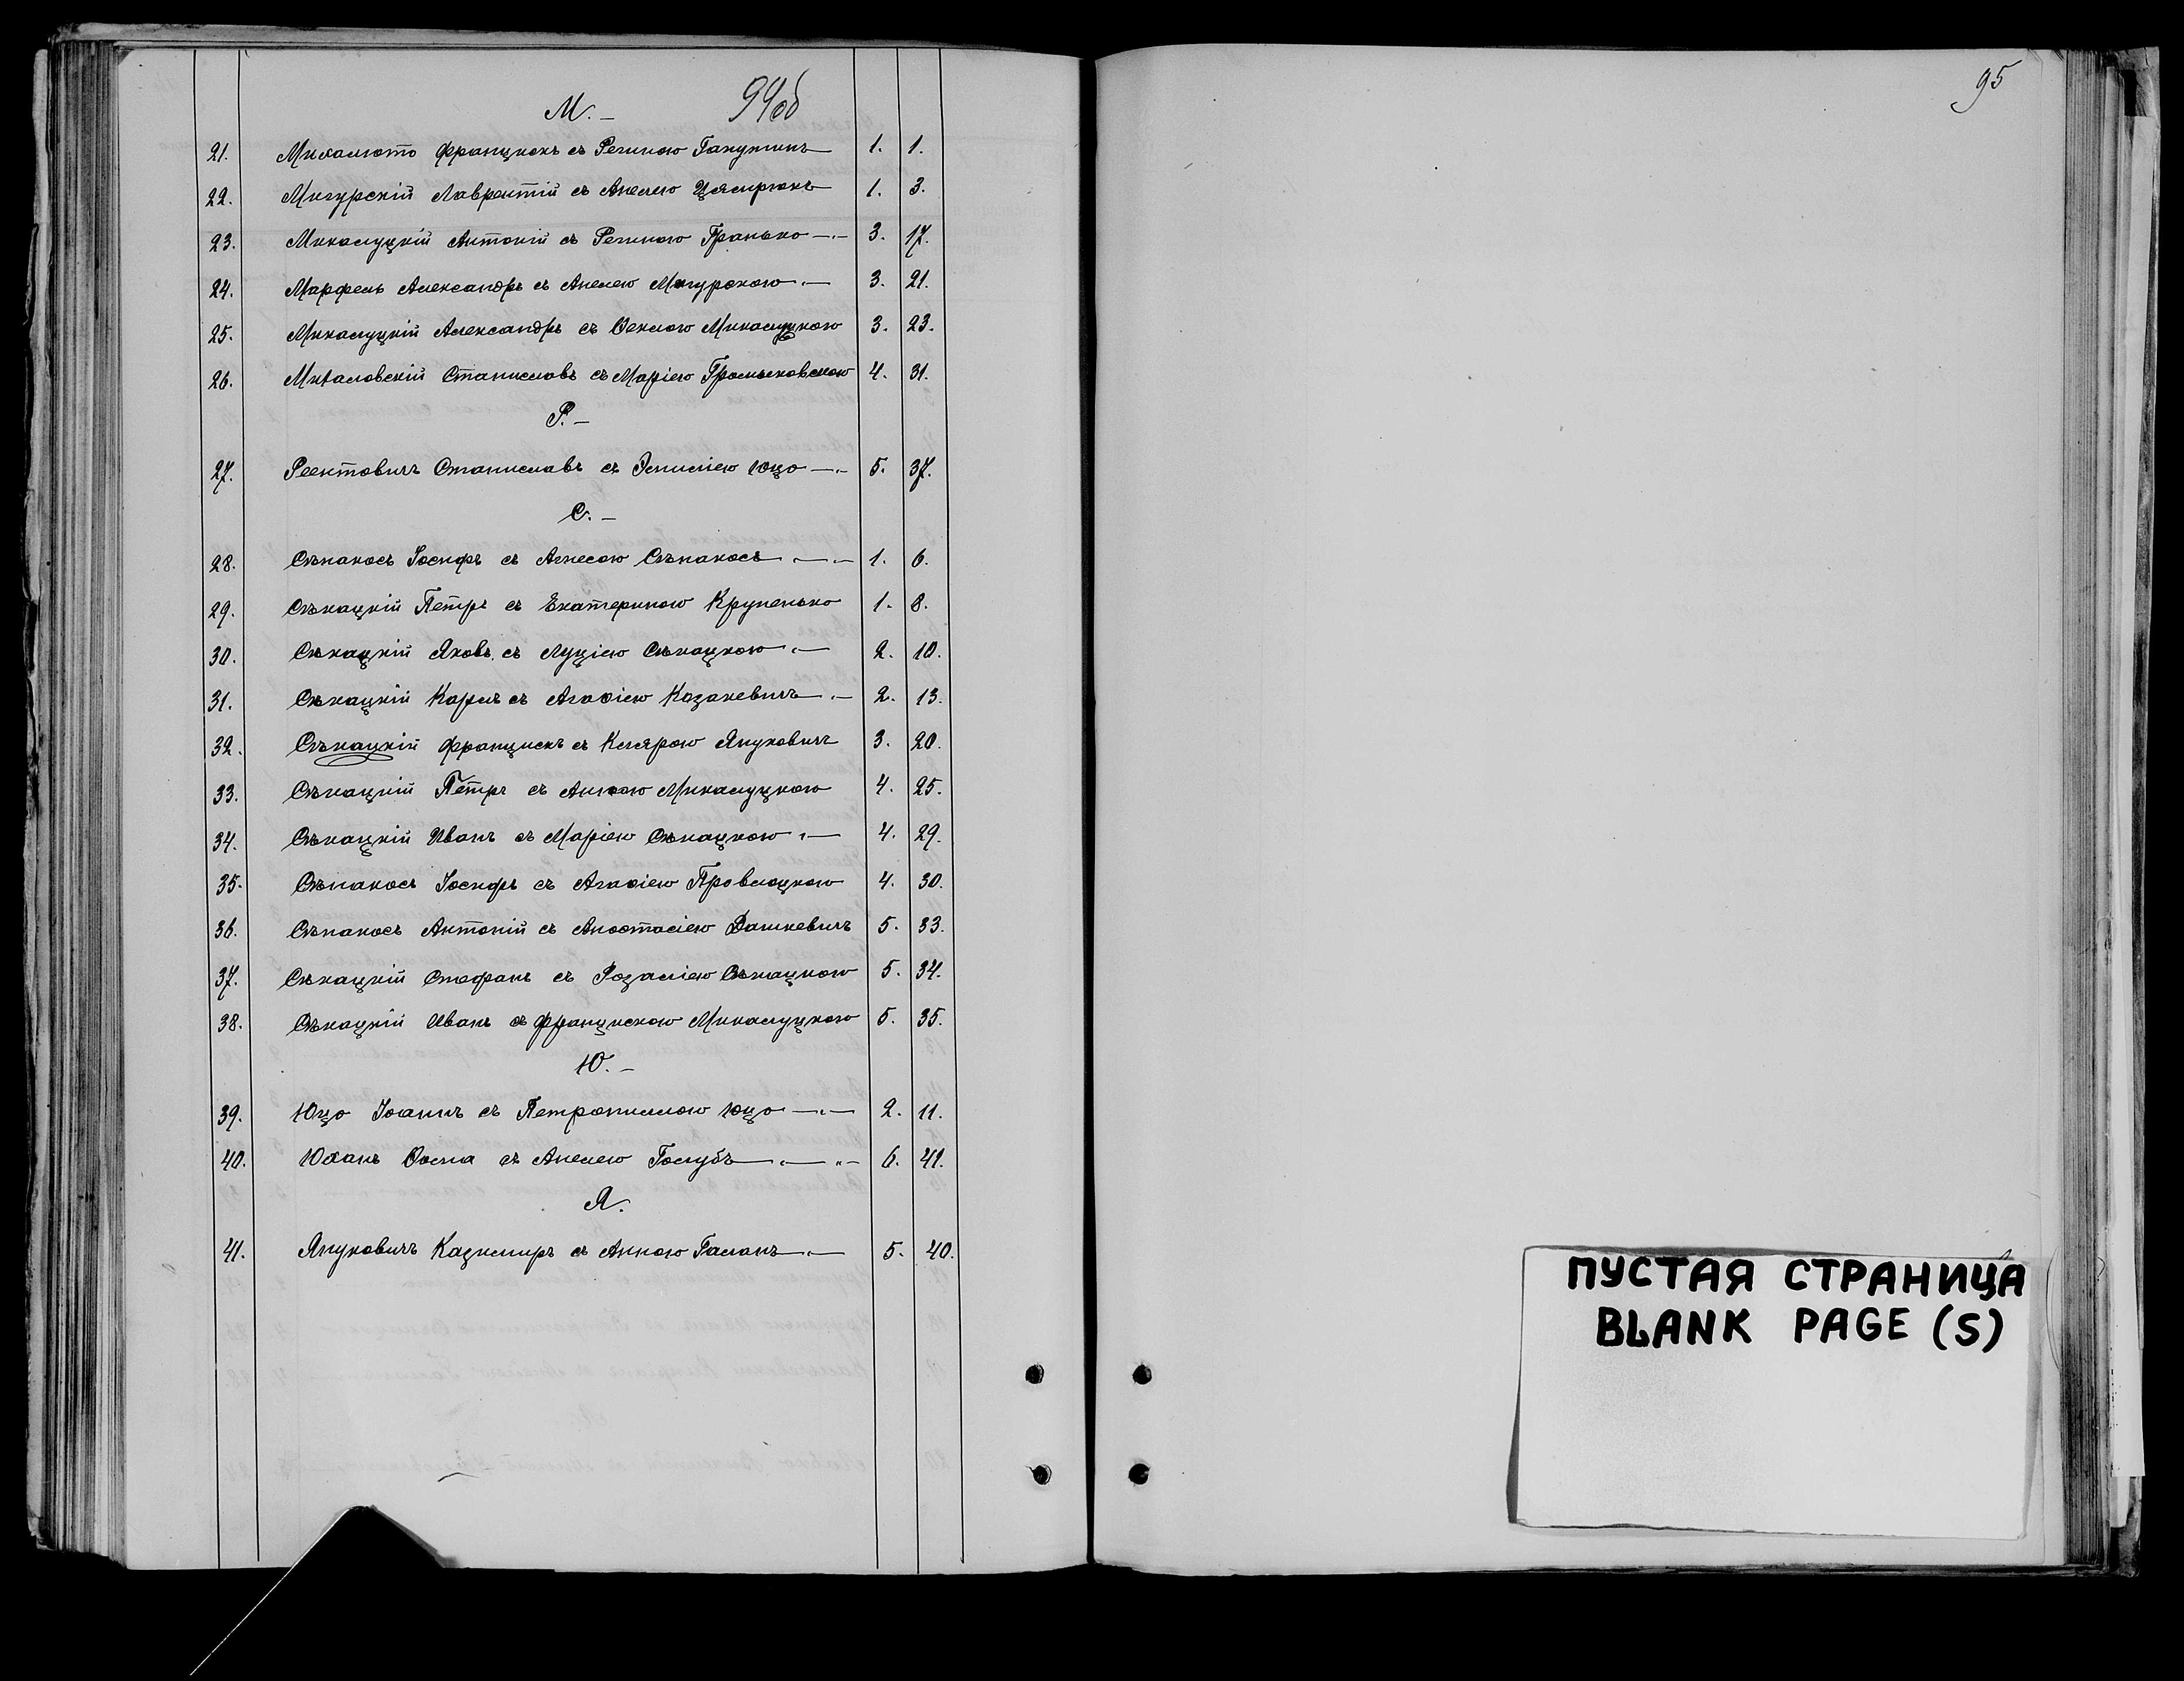 94об
М. –
21. Михалюто Францискъ съ Региною Ганутинъ 1. 1.
22. Мигурскій Лаврентій съ Анелею Цямрюкъ 1. 3.
23. Микалуцкій Антоній съ Региною Гранько 3. 17.
24. Марфель Александръ съ Анелею Мигурскою 3. 21.
25. Микалуцкій Александръ съ Ѳеклою Микалуцкою 3. 23.
26. Михаловскій Станиславъ съ Маріею Громыковскою 4. 31.
Р. –
27. Реентовичъ Станиславъ съ Эмиліею Юцо 5. 37.
С. –
28. Сѣнакосъ Іосифъ съ Агнесою Сѣнакосъ 1. 6.
29. Сѣкацкій Петръ съ Екатериною Крупенько 1. 8.
30. Сѣкацкій Яковъ съ Луціею Сѣкацкою 2. 10.
31. Сѣкацкій Карлъ съ Агаѳіею Казакевичъ 2. 13.
32. Сѣкацкій Францискъ съ Клярою Януковичъ 3. 20.
33. Сѣкацкій Петръ съ Анною Микалуцкою 4. 25.
34. Сѣкацкій Иванъ съ Маріею Сѣкацкою 4. 29.
35. Сѣнакосъ Іосифъ съ Агаѳіею Провлоцкою 4. 30.
36. Сѣнакосъ Антоній съ Анастасіею Дашкевичъ 5. 33.
37. Сѣкацкій Стефанъ съ Розаліею Сѣкацкою 5. 34.
38. Сѣкацкій Иванъ съ Францискою Микалуцкою 5. 35.
Ю. –
39. Юцо Іоаннъ съ Петрониллою Юцо 2. 11.
40. Юханъ Ѳома съ Анелею Голубъ 6. 41.
Я.
41. Януковичъ Казимиръ съ Анною Галанъ 5. 40.
95
ПУСТАЯ СТРАНИЦА
BLANK PAGE (S)